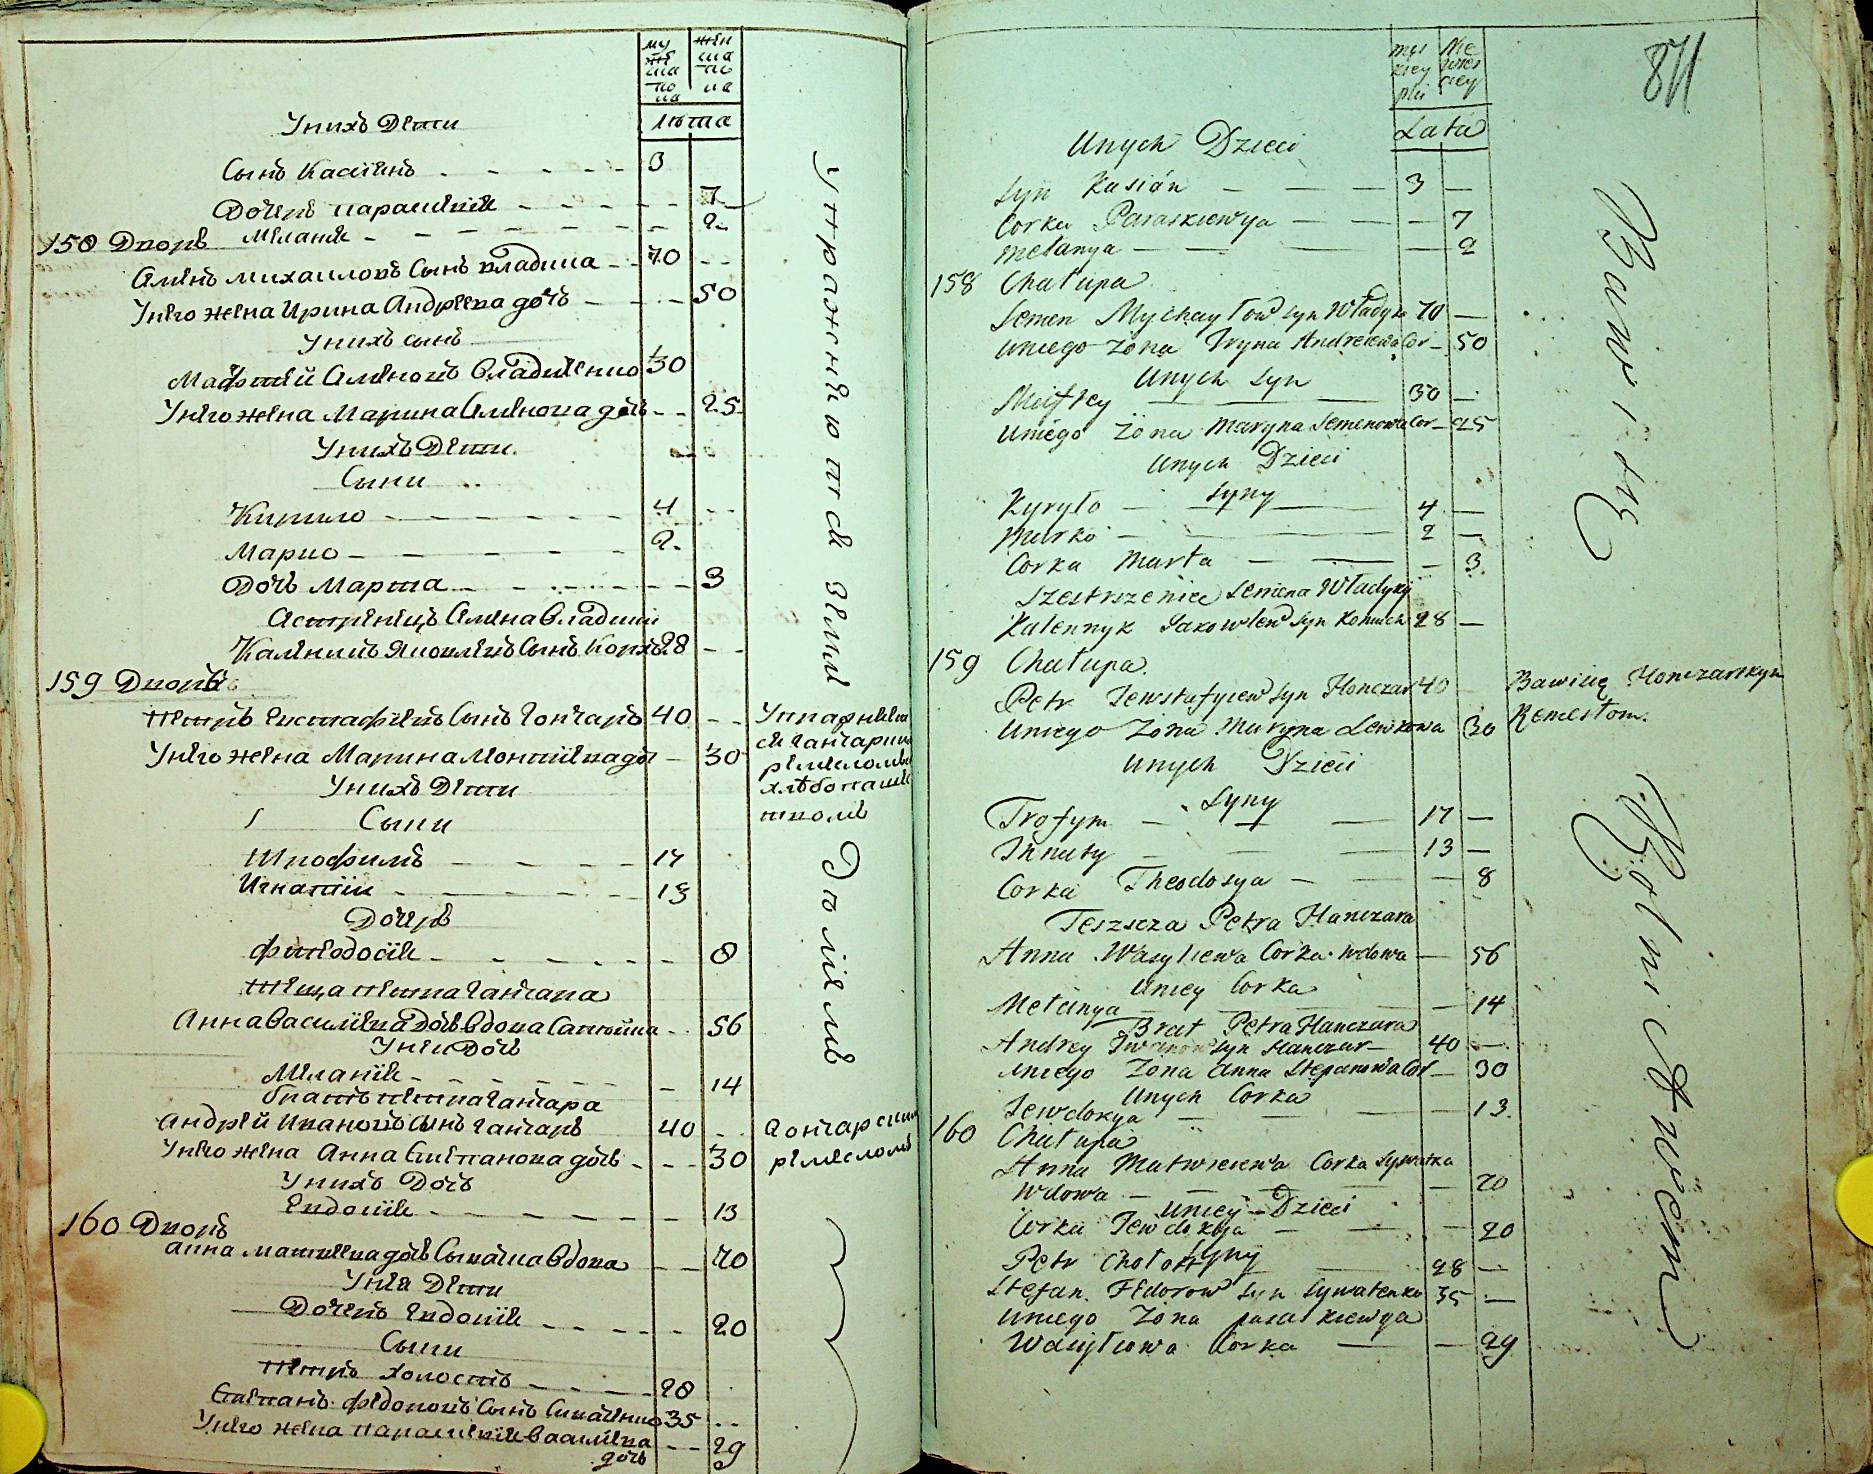 му же ска по ла
жен ска по ла
лѣта
Унихъ Дети
Сынъ Касіянъ - - - - - 3
Дочеръ Параскевія - - - - - 7
Меланія - - - - - - 2
158 Дворъ
Семенъ Михаиловъ Сынъ Владика - - 70 - -
Унего жена Ирина Андреева дочь - - - 50
Унихъ сынъ
Мафтей Семеновъ Владиченко 30
Унего жена Марина Семенова дочь - - 25
Унихъ Дети
Сыни
Кирило - - - - - 4 - -
Марко - - - - - 2
Дочь Марта - - - - - 3
Сестренецъ Семена Владики
Каленикъ Яковлевъ Сынъ Корж 28 - -
159 Дворъ
Петръ Евстафіевъ Сынъ Гончаръ 40 - -
Унего жена Марина Левкова дочь - 30
Унихъ Дети
Сыни
Трофимъ - - - - 17
Игнатій - - - - - 13
Дочеръ
Феодосія - - - - - - 8
Теща Петра Гончара
Анна Василіева Дочь Вдова - - 56
Унеи Дочь
Меланія - - - - - - 14
Братъ Петра Гончара
Андрей Ивановъ Сынъ Гончаръ 40 - -
Унего жена Анна Степанова дочь - - - 30
Унихъ Дочь
Евдокія - - - - - - 13
160 Дворъ
Анна Матвеева дочь Вдова - - 70
Унея Дети
Дочеръ Евдокія - - - - - 20
Сыни
Петръ холостъ - - - - 28
Степанъ Федоровъ Сынъ 35 - -
Унего жена Параскевія Василіева - - 29
дочь
Упражняются
Гончарскимъ
ремесломъ
Упражняются землі
Гончарскимъ
ремесломъ
871
Męz kiey płci
Nie wies ciey
Lata
Unych Dzieci
Syn Kasián — — — 3 —
Corka Paraskiewya — — - 7
Metanya — — — 2
158 Chatupa
Semen Mychayłow Syn Władyka 70 —
Uniego Zona Iryna Andreiewa Cor — 50
Unych Syn
Meiftey — — 30 —
Uniego Zona Maryna Semenowa Cor — 25
Unych Dzieci
Syny
Kyryło — — 4 —
Marko — — 2 —
Corka Marta — — — 3
Szestrzeniec Semena Władyky
Kalennyk Jakowlew Syn 28 —
159 Chatupa
Petr Jewstafyiew Syn Honczar 40 — Bawi się Honczarskym
Uniego Zona Maryna Lewkowa 30 Remesłom.
Unych Dzieci
Syny
Trofym — — — 17 —
Ihnaty — — — 13 —
Corka Theodosya — — — 8
Teszcza Petra Hanczara
Anna Wasyliewa Corka wdowa — 56
Uniey Corka
Metanya — — — 14
Brat Petra Hanczara
Andrey Iwanow Syn Hanczar — 40 —
Uniego Zona Anna Stepanowa Cor — 30
Unych Corka
Jewdokya — — — 13.
160 Chatupa
Anna Matwieiewa Corka
Wdowa — — — — 70
Uniey Dzieci
Corka Jewdokya — — — 20
Syny
Petr Chołost — 28 —
Stefan Fedorow Syn Sywatenko 35 —
Uniego Zona Paraskiewya
Wasylowa Corka — — 29
Bawi się Rolnictwem